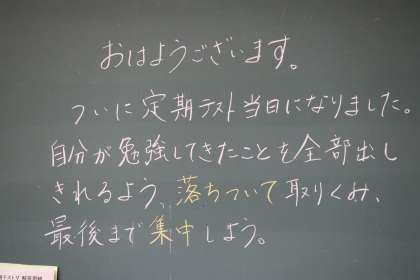 おはようございます。
ついに定期テスト当日になりました。
自分が勉強してきたことを全部出し
きれるよう、落ちついて取りくみ、
最後まで集中しよう。